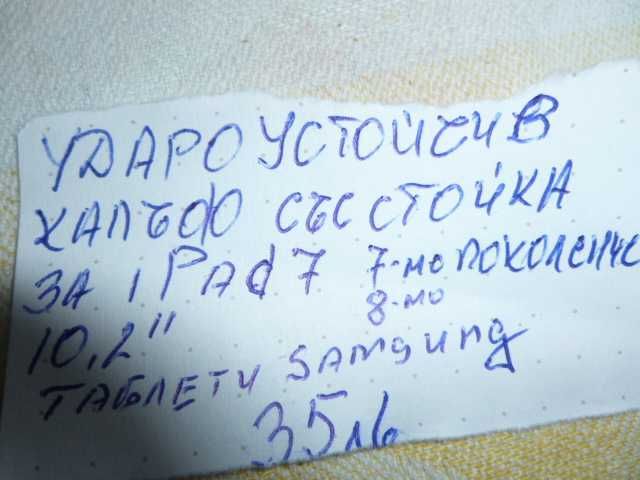 УДАРОУСТОЙЧИВ
КАЛЪФ СЪС СТОЙКА
ЗА IPAd 7 7-мо ПОКОЛЕНИЕ
8-мо
10,2"
ТАБЛЕТИ SAMSUNG
35лв